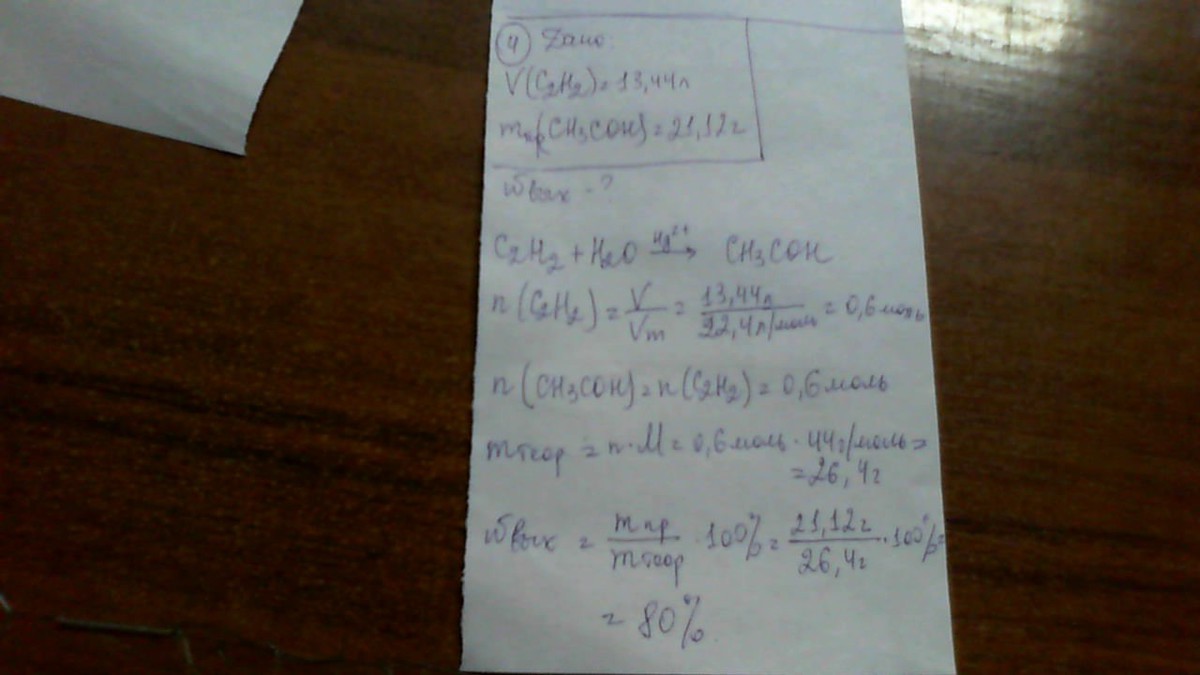 4 Дано:
V(C2H2) = 13,44 л
mпр(CH3COH) = 21,12 г
ωвых - ?
C2H2 + H2O Hg2+→ CH3COH
n(C2H2) = V/Vm = 13,44 л/22,4 л/моль = 0,6 моль
n(CH3COH) = n(C2H2) = 0,6 моль
mтеор = n·M = 0,6 моль · 44 г/моль =
= 26,4 г
ωвых = mпр/mтеор · 100% = 21,12 г/26,4 г · 100% =
= 80%